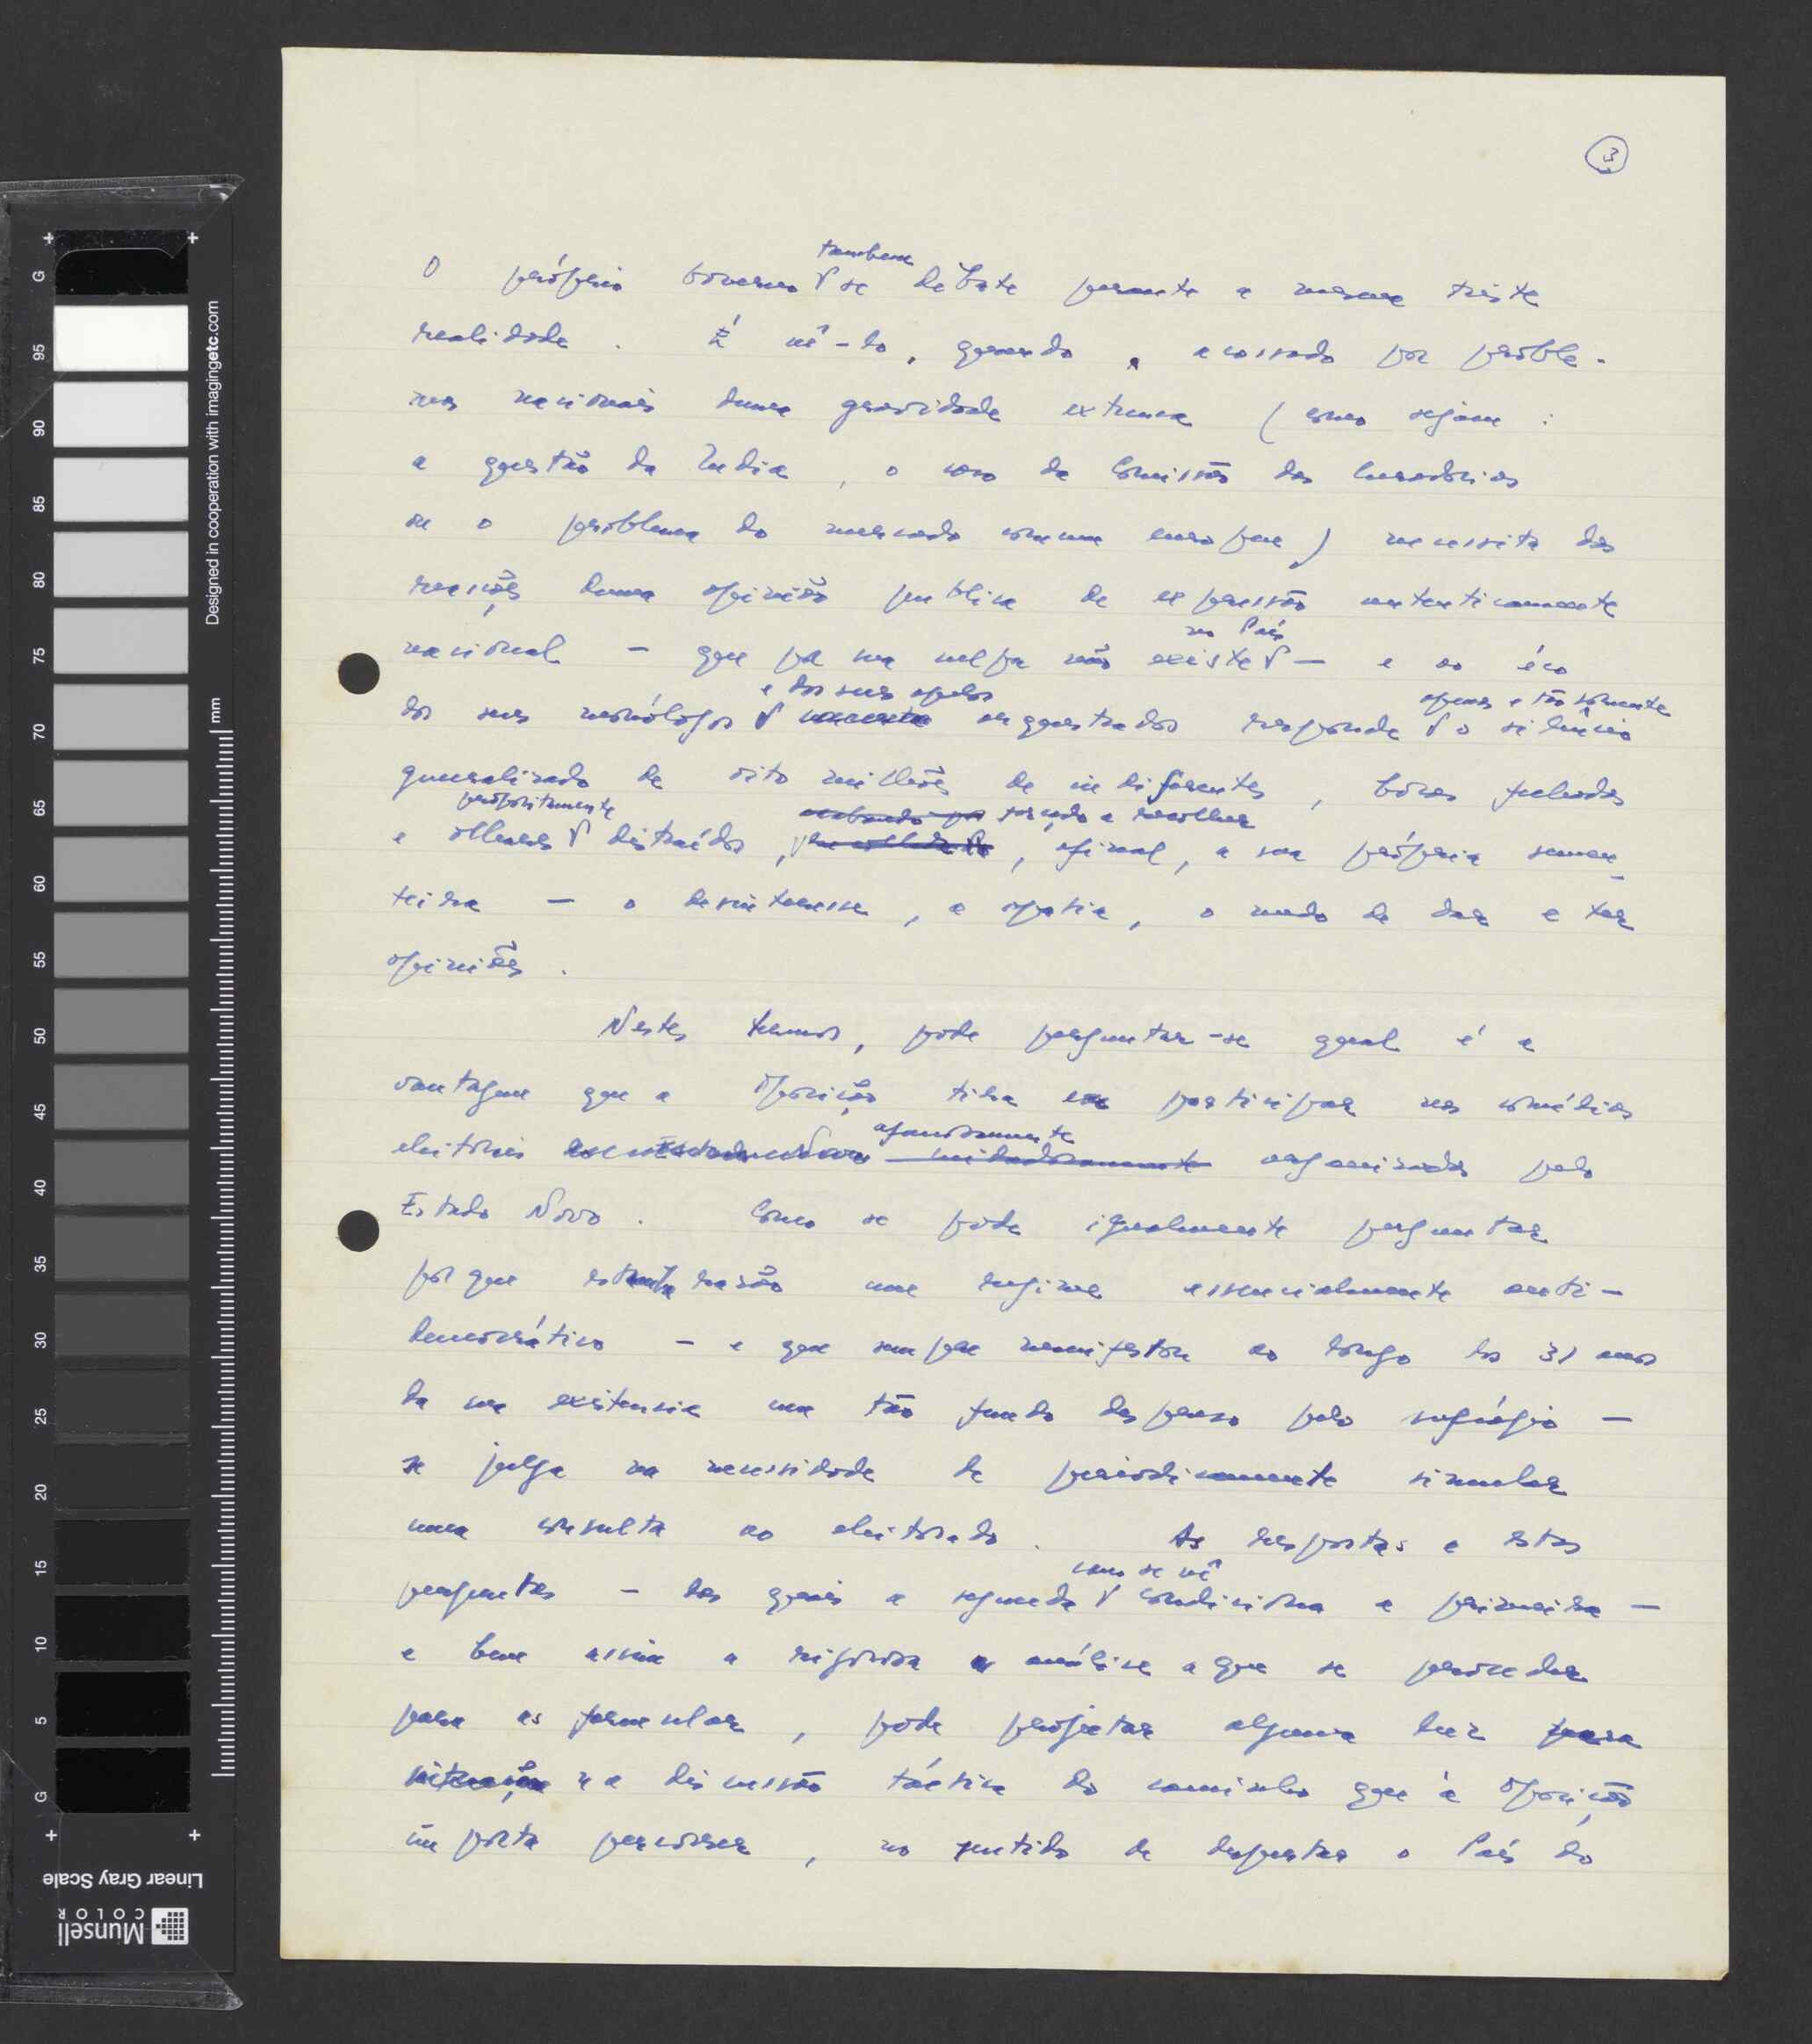 3
O próprio Governo também se debate perante a mesma triste
realidade. É vê-lo, quando, acossado por proble-
mas nacionais duma gravidade extrema (como sejam:
a questão da India, o caso da Comissão das Curadorias
ou o problema do mercado comum europeu) necessita das
reacções duma opinião publica de expressão autenticamente
nacional — que por sua culpa não existe no País — e ao éco
dos seus monólogos e dos seus apelos angustiados responde apenas e tão sòmente o silêncio
generalizado de oito milhões de indiferentes, bôcas fechadas
e olhares propositamente distraídos, forçado a recolher, afinal, a sua própria semen-
teira — o desinteresse, a apatia, o medo de dar e ter
opiniões.
Nestes termos, pode perguntar-se qual é a
vantagem que a Oposição tira em participar nas comédias
eleitorais afanosamente cuidadosamente organizadas pelo
Estado Novo. Como se pode igualmente perguntar
porque razão um regime essencialmente anti-
democrático — e que sempre manifestou ao longo dos 31 anos
da sua existencia um tão fundo desprezo pelo sufrágio —
se julga na necessidade de periodicamente simular
uma consulta ao eleitorado. As respostas a estas
perguntas — das quais a segunda como se vê condiciona a primeira —
e bem assim a rigorosa análise a que se proceder
para as formular, pode projetar alguma luz para
situação na discussão táctica do caminho que à Oposição
importa percorrer, no sentido de despertar o País do
Designed in cooperation with imagingetc.com
mm
G
95
90
85
80
75
70
65
60
55
50
45
40
35
30
25
20
15
10
5
G
Linear Gray Scale
Munsell
COLOR